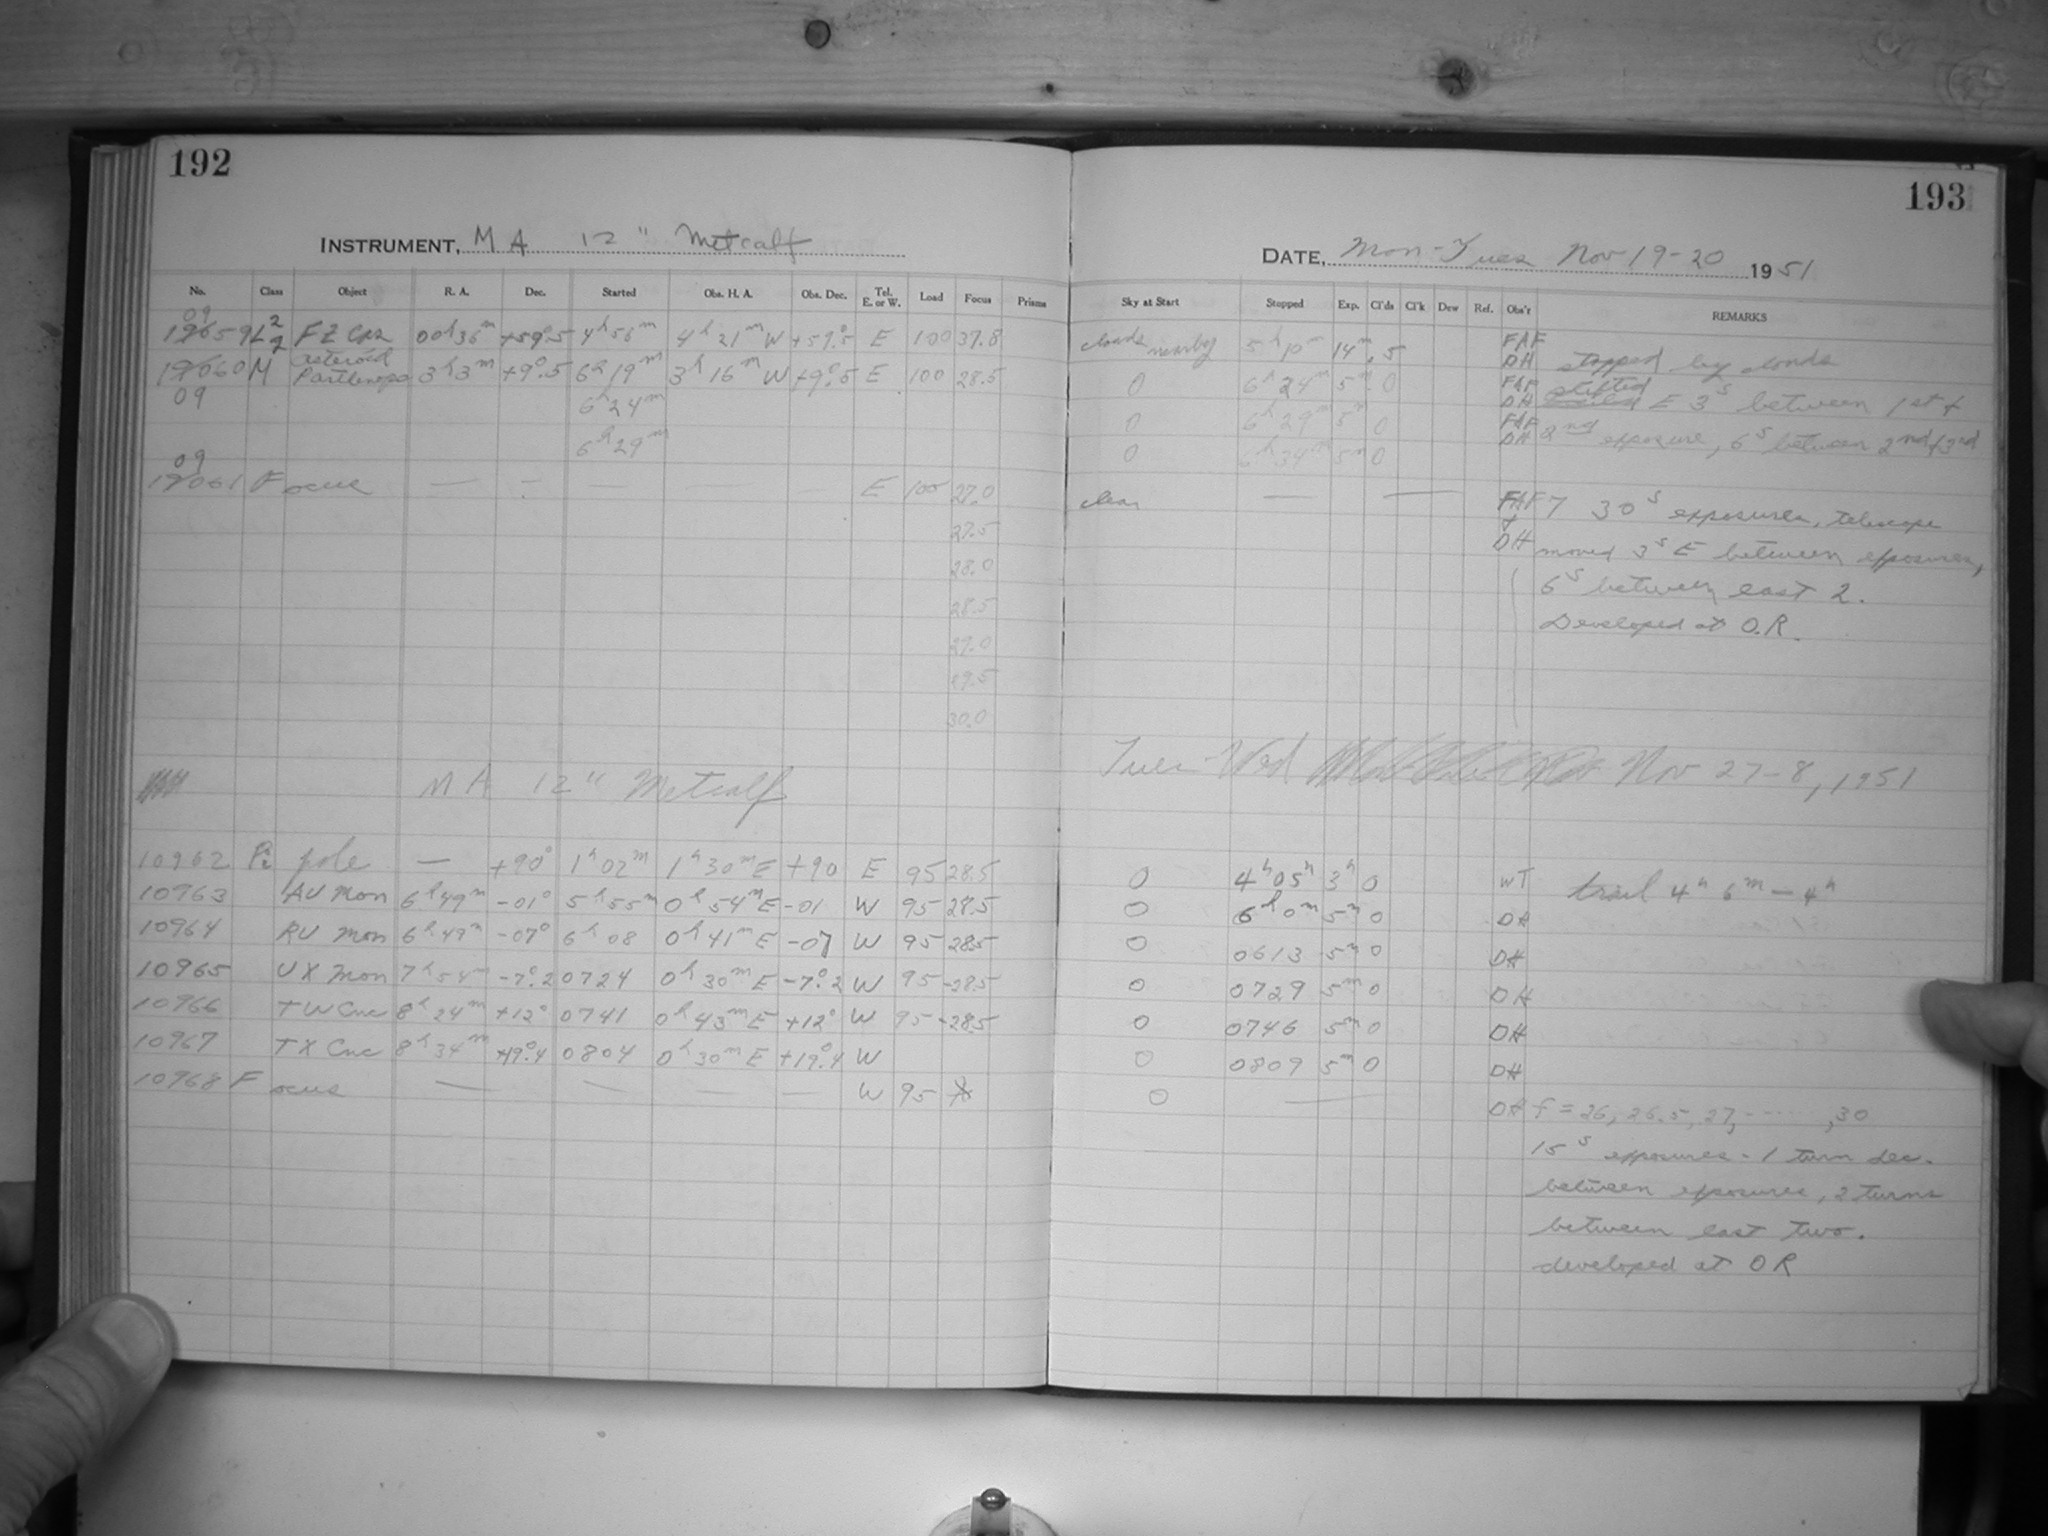 192
INSTRUMENT, MA 12" Metcalf
No. Class Object R. A. Dec. Started Obs. H. A. Obs. Dec. Tel. E. or W. Load Focus Prisms
09
FZ Cas 00h36m +59°.5 4h56m 4h21m W +59°.5 E 100 37.8
M asteroid Parthenope 3h3m +9°.5 6h19m 3h16m W +9°.5 E 100 28.5
09 6h24m
6h29m
09
Focus — — — — E 100 27.0
27.5
28.0
28.5
29.0
29.5
30.0
MA 12" Metcalf
10962 pole — +90° 1h02m 1h30m E +90 E 95 28.5
10963 AU Mon 6h49m -01° 5h55m 0h54m E -01 W 95 28.5
10964 RU Mon 6h49m -07° 6h08 0h41m E -07 W 95 28.5
10965 UX Mon 7h54m -7°.2 0724 0h30m E -7°.2 W 95 28.5
10966 TW Cnc 8h24m +12° 0741 0h43m E +12° W 95 28.5
10967 TX Cnc 8h34m +19°.4 0804 0h30m E +19°.4 W
10968 Focus — — — — W 95
193
DATE, Mon-Tues Nov 19-20 1951
Sky at Start Stopped Exp. Cl'ds Cl'k Dew Ref. Obs'r REMARKS
clouds nearby 5h10m 14m .5 FAF DH stopped by clouds
0 6h24m 5m 0 FAF DH shifted E 3s between 1st &
0 6h29m 5m 0 FAF DH 2nd exposure, 6s between 2nd & 3rd
0 6h34m 5m 0
clear — — FAF & DH 7 30s exposures, telescope
moved 3s E between exposures,
6s between last 2.
Developed at O.R.
Tues-Wed Nov 27-8, 1951
0 4h05m 3h 0 WT trail 4h 6m — 4h
0 6h0m 5m 0 DH
0 0613 5m 0 DH
0 0729 5m 0 DH
0 0746 5m 0 DH
0 0809 5m 0 DH
0 — DH f = 26, 26.5, 27, ------, 30
15s exposures - 1 turn dec.
between exposures, 2 turns
between last two.
developed at OR